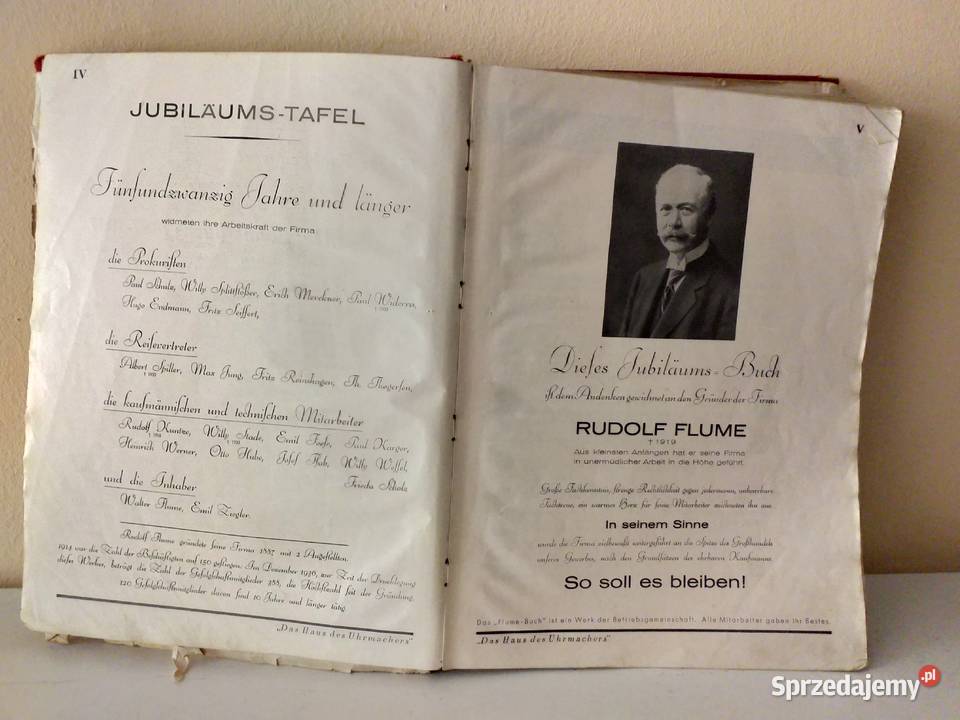 IV
JUBILÄUMS-TAFEL
Fünfundzwanzig Jahre und länger
widmeten ihre Arbeitskraft der Firma
die Prokuristen
Paul Schulz, Willy Splittstößer, Erich Merckner, Paul Widerra,
Hugo Endmann, Fritz Seiffert,
die Reisevertreter
Albert Spiller, Max Jung, Fritz Reinshagen, Th. Thegersen,
die kaufmännischen und technischen Mitarbeiter
Rudolf Kuntze, Willy Stade, Emil Paul Karger,
Heinrich Werner, Otto Hube, Josef Willy Wessel,
Scholz
und die Inhaber
Walter Flume, Emil Ziegler.
Rudolf Flume gründete seine Firma 1887 mit 2 Angestellten.
1914 war die Zahl der Beschäftigten auf 150 gestiegen. Im Dezember 1936, zur Zeit der Drucklegung
dieses Werkes, beträgt die Zahl der Gefolgschaftsmitglieder 288, die Höchstzahl seit der Gründung.
120 Gefolgschaftsmitglieder davon sind 10 Jahre und länger tätig.
„Das Haus des Uhrmachers"
V
Dieses Jubiläums-Buch
ist dem Andenken gewidmet an den Gründer der Firma
RUDOLF FLUME
† 1919
Aus kleinsten Anfängen hat er seine Firma
in unermüdlicher Arbeit in die Höhe geführt.
Große Fachkenntnis, strenge Rechtlichkeit gegen jedermann, unbeirrbare
ein warmes Herz für seine Mitarbeiter zeichneten ihn aus.
In seinem Sinne
wurde die Firma zielbewußt weitergeführt an die Spitze des Großhandels
unseres Gewerbes, nach den Grundsätzen des ehrbaren Kaufmanns.
So soll es bleiben!
Das „Flume-Buch" ist ein Werk der Betriebsgemeinschaft. Alle Mitarbeiter gaben ihr Bestes.
„Das Haus des Uhrmachers"
Sprzedajemy.pl